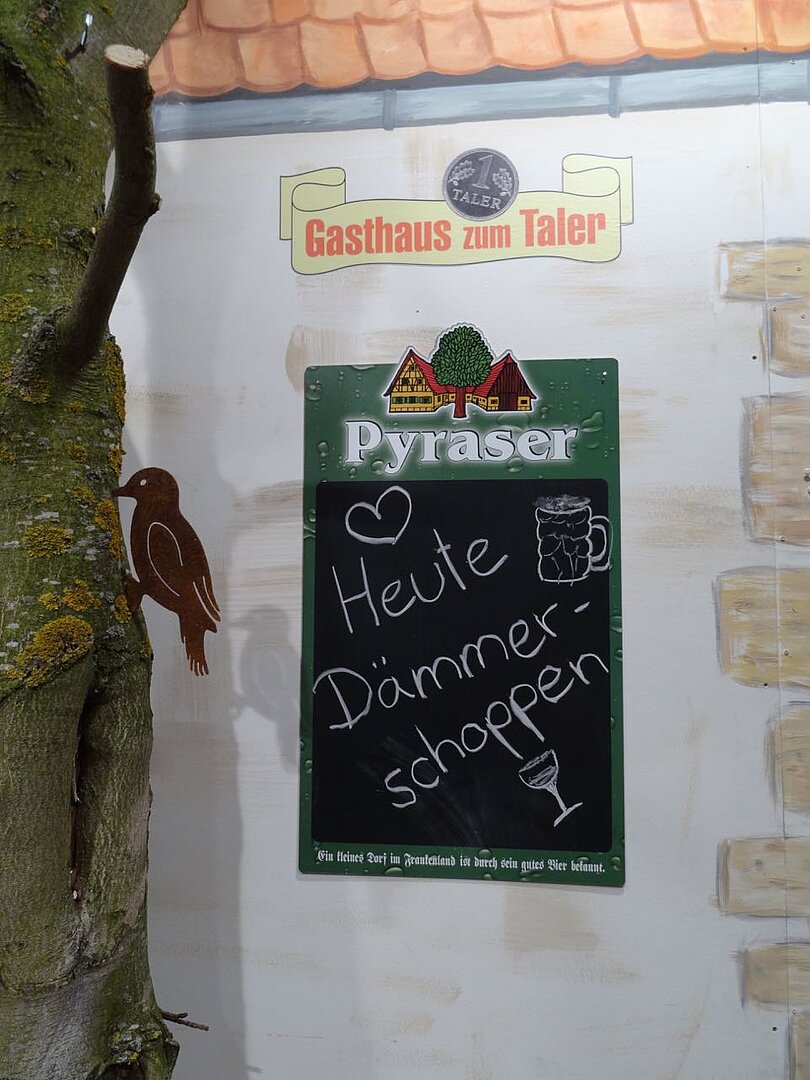 1
TALER
Gasthaus zum Taler
Pyraser
Heute
Dämmer-
schoppen
Ein kleines Dorf im Frankenland ist durch sein gutes Bier bekannt.